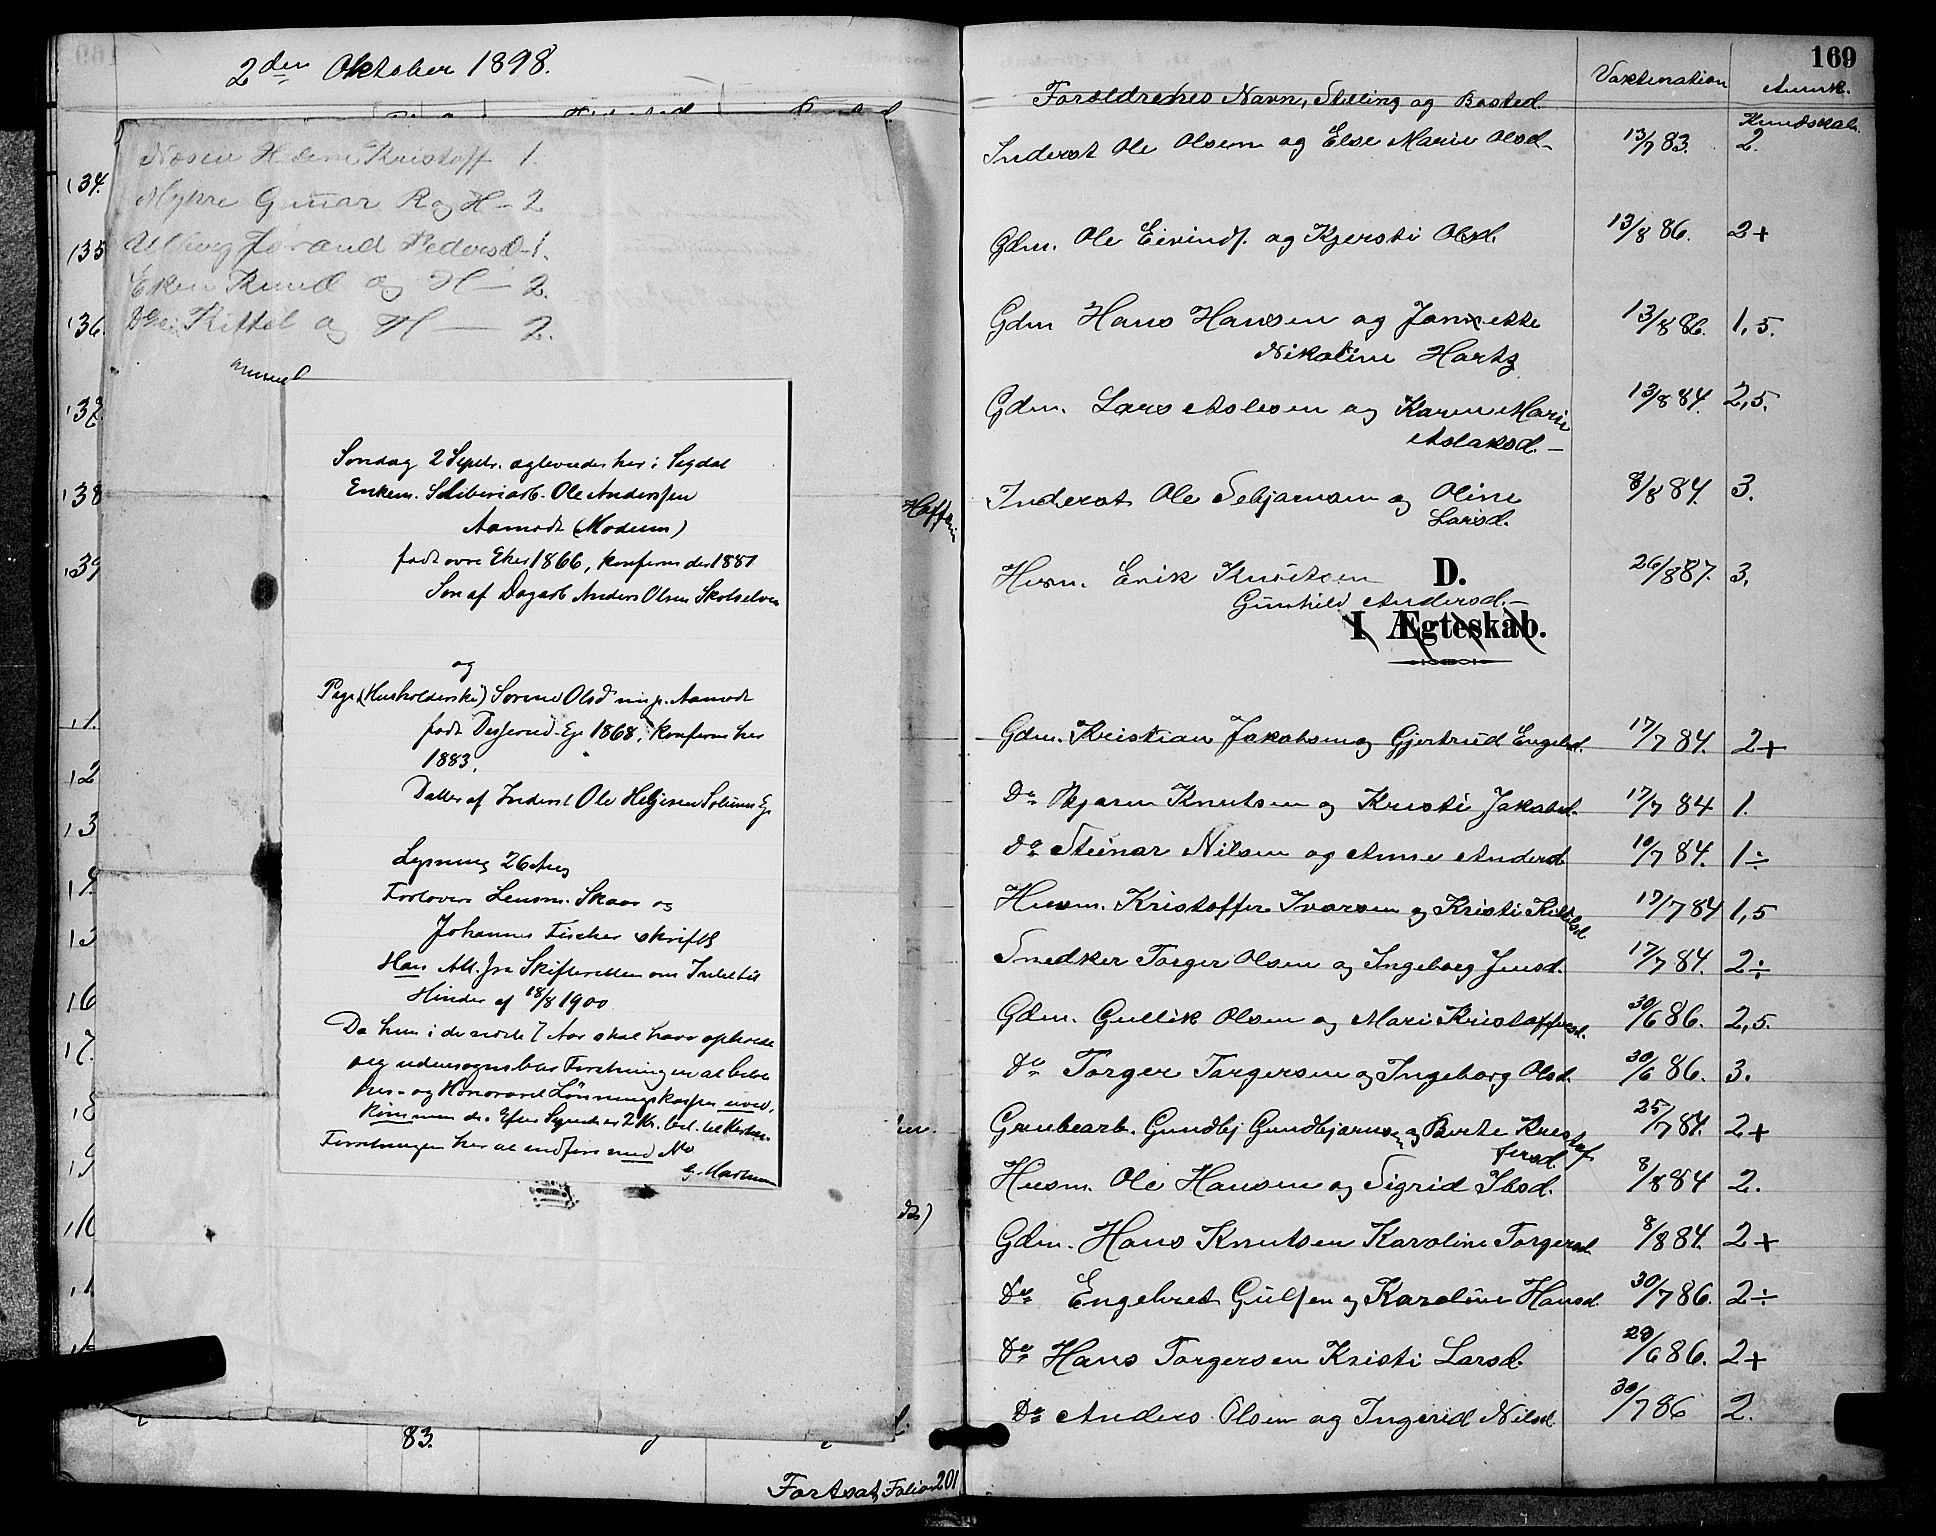 2den Oktober 1898.
Nosen Helene Kristoff 1.
Mykre Gunar R og H - 2
Ulberg Jorand Pedersd - 1.
Eken Knud og H - 2.
Do Kittel og H - 2.
134.
135
136.
137.
138
139
11.
12
13
14.
15
16
17.
18
19
110
11
Søndag 2 Septr. ægteviedes her i Sigdal
Enkem. Sliberiarb. Ole Anderssen
Aamodt (Modum)
født øvre Eker 1866, konfirmeret 1881
Søn af Dagarb Anders Olsen Skotselven
og
Pige (Husholderske) Sorine Olsd
født Eg. 1868, konfirm her
1883.
Datter af Inderst Ole Helgesen Solum Eg.
Lysning 26 Aug
Forlovere Lensm. Skaar og
Johannes Fischer skriftlg
Han Att. fra Skifteretten om Intet til
Hinder af 18/8 1900
Da hun i de sidste 7 Aar skal have opholdt
sig udensogns bør Forretningen at
og Honorar
Efter 2 Kr.
Forretningen her at indføre med No
83.
Fortsat, Folio 201
169
Forældrenes Navn, Stilling og Bosted.
Vaxination
Anmk.
Kundskab.
Inderst Ole Olsen og Else Marie Olsd - 13/7 83. 2.
Gdm. Ole Eivinds. og Kjersti Olsd. 13/8 86. 2+
Gdm Hans Hansen og Jansette 13/8 86. 1,5.
Nikoline Hartz
Gdm. Lars Aslesen og Karen Marie 13/8 84. 2,5.
Aslaksd. -
Inderst Ole Sebjørnsen og Oline 8/8 84. 3.
Larsd.
Husm. Erik Knudsen 26/8 87. 3.
D.
Gunhild Andersd. -
I Ægteskab.
Gdm. Kristian Jakobsen og Gjertrud Engebd. 17/7 84. 2+
Do Bjøren Knutsen og Kristi Jakobsd. 17/7 84 1.
do Steinar Nilsen og Anne Andersd 10/7 84. 1÷
Husm. Kristoffer Ivarsen og Kristi Kittilsd 17/7 84 1,5
Snedker Torger Olsen og Ingeborg Jensd. 17/7 84. 2÷
Gdm. Gullik Olsen og Mari Kristoffersd. 30/6 86. 2,5.
do Torger Torgersen og Ingeborg Olsd. 30/6 86. 3.
Grubearb. Gundbj Gundbjørnsen og Berte Kristof 25/7 84. 2+
fersd.
Husm. Ole Hansen og Sigrid Ibsd. 8/8 84 2.
Gdm. Hans Knutsen Karoline Torgersd 8/8 84. 2+
do Engebret Gulsen og Karoline Hansd. 30/7 86. 2÷
do Hans Torgersen Kristi Larsd. 29/6 86. 2+
Do Anders Olsen og Ingerid Nilsd. 30/7 86 2.